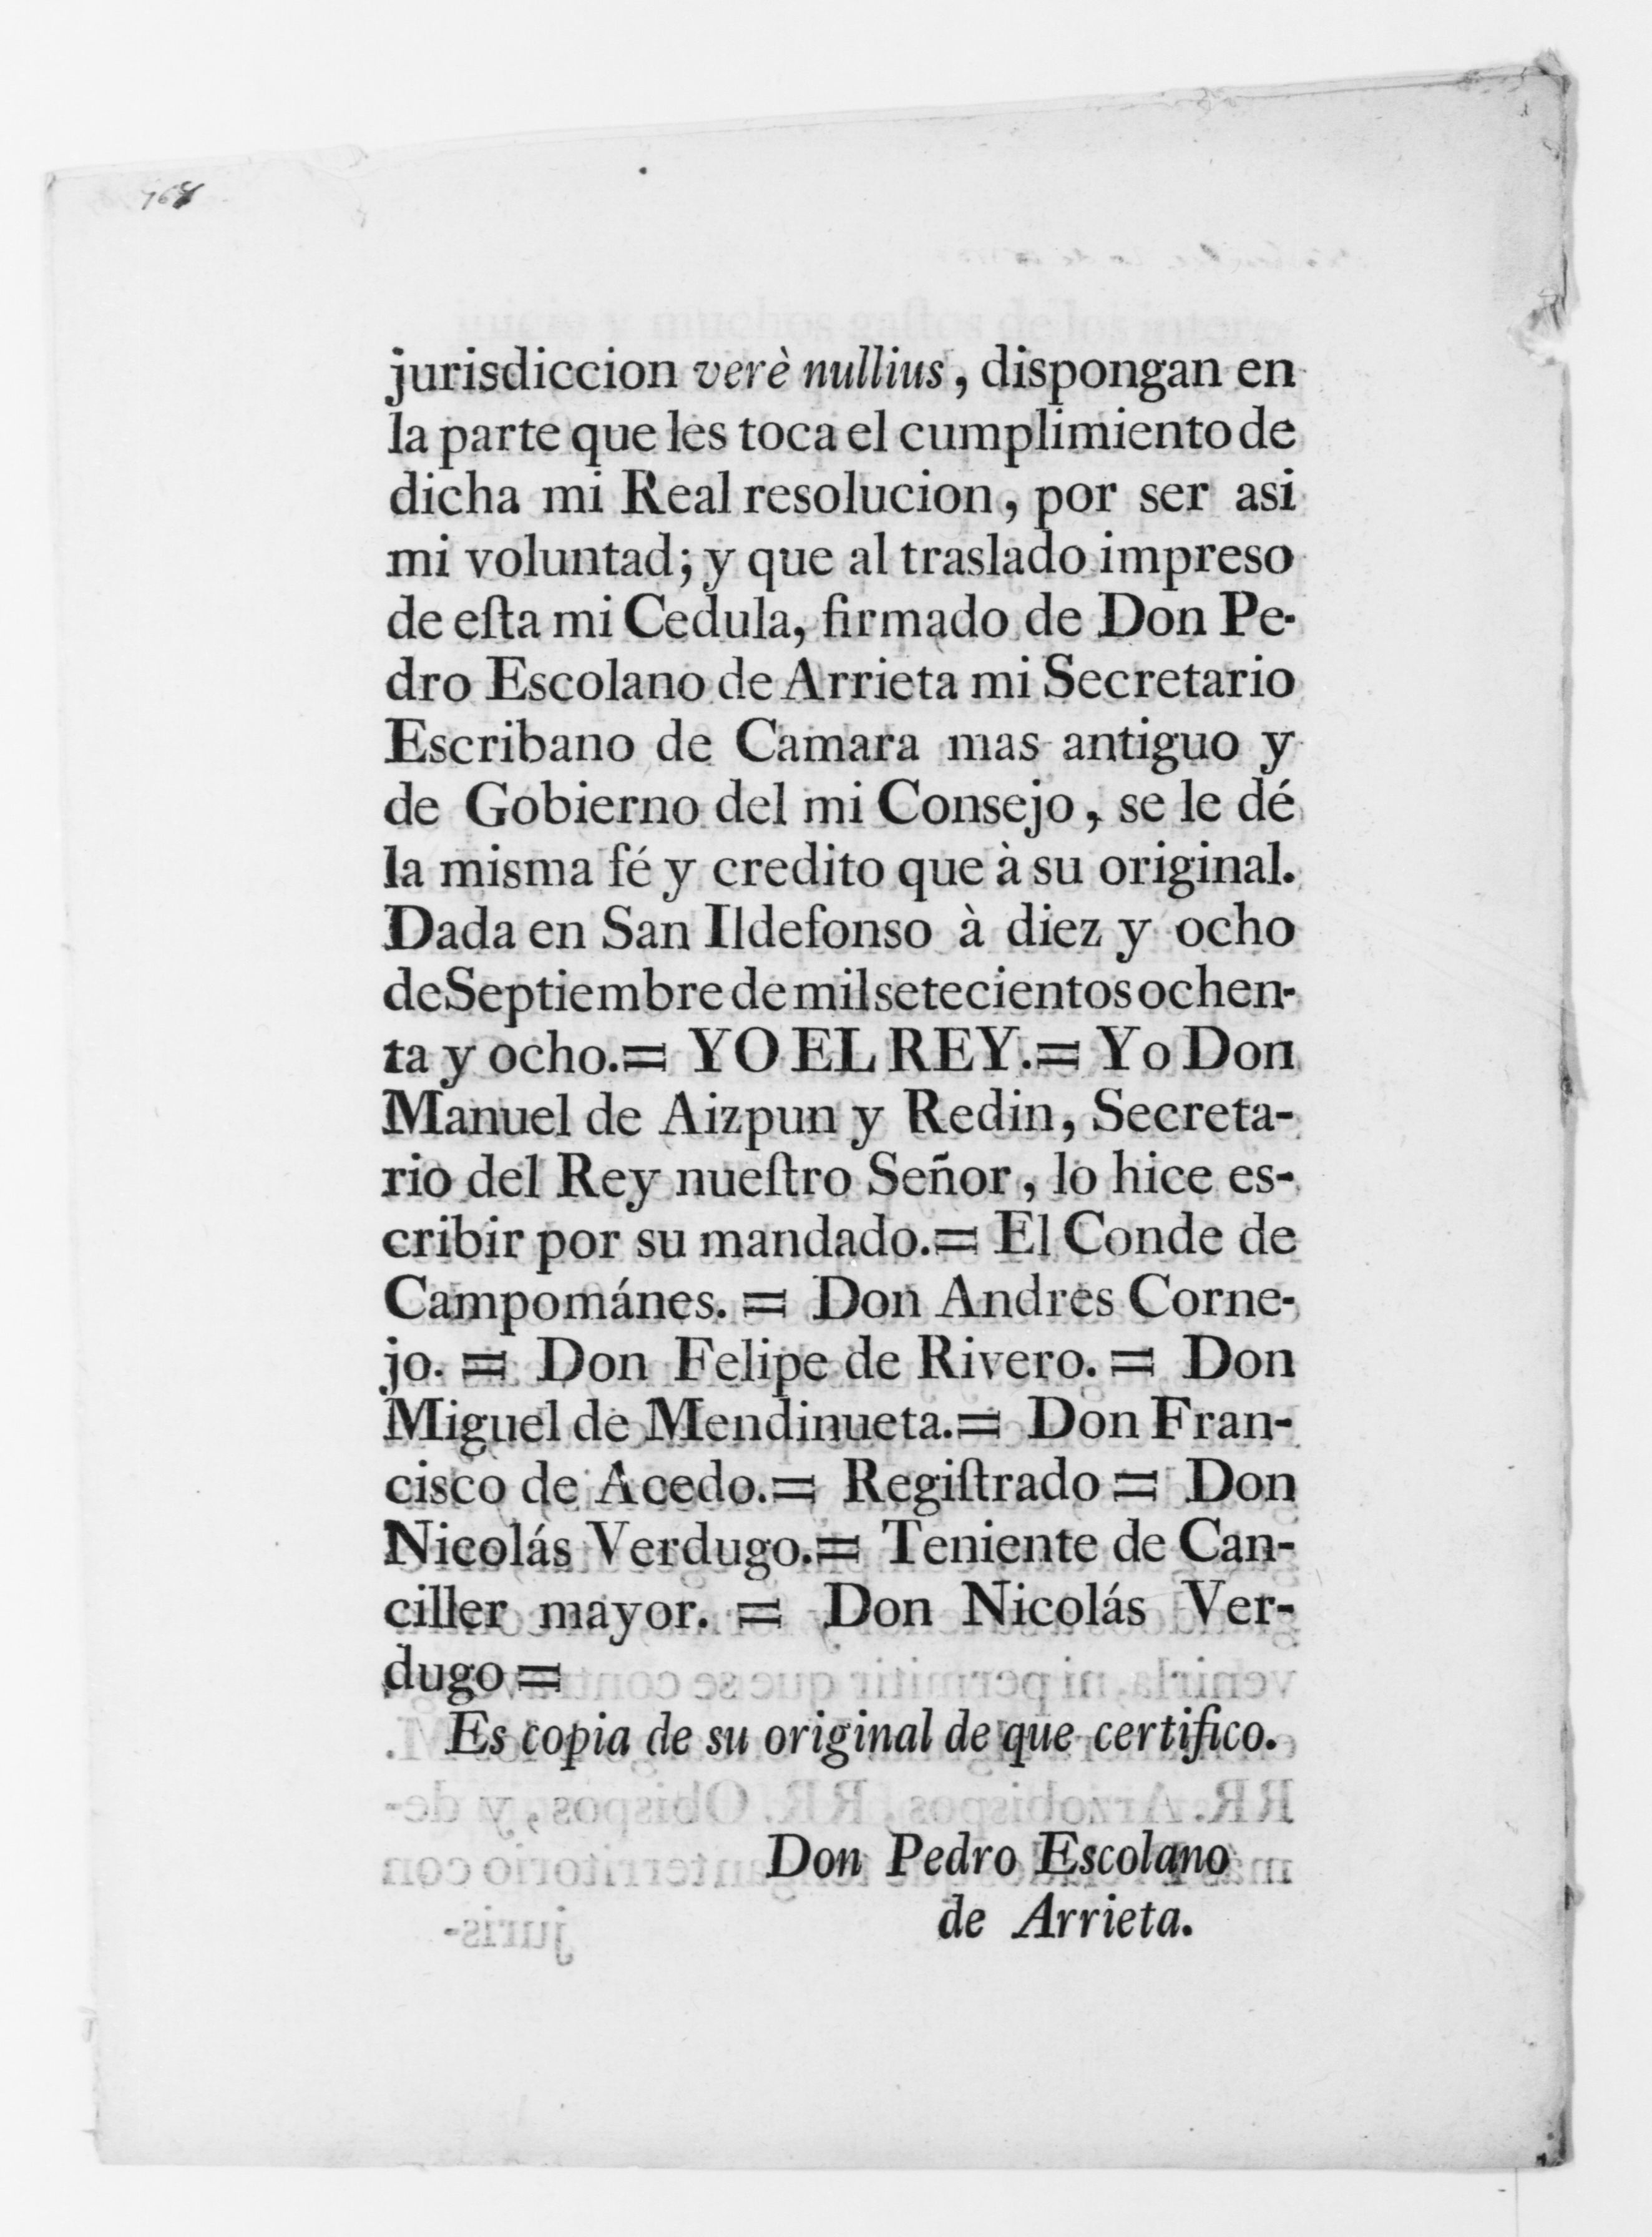 jurisdiccion verè nullius, dispongan en
la parte que les toca el cumplimiento de
dicha mi Real resolucion, por ser asi
mi voluntad; y que al traslado impreso
de eſta mi Cedula, firmado de Don Pe-
dro Escolano de Arrieta mi Secretario
Escribano de Camara mas antiguo y
de Gobierno del mi Consejo, se le dé
la misma fé y credito que à su original.
Dada en San Ildefonso à diez y ocho
de Septiembre de mil setecientos ochen-
ta y ocho.= YO EL REY.= Yo Don
Manuel de Aizpun y Redin, Secreta-
rio del Rey nueſtro Señor, lo hice es-
cribir por su mandado.= El Conde de
Campománes. = Don Andres Corne-
jo. = Don Felipe de Rivero. = Don
Miguel de Mendinueta.= Don Fran-
cisco de Acedo.= Regiſtrado = Don
Nicolás Verdugo.= Teniente de Can-
ciller mayor. = Don Nicolás Ver-
dugo =
Es copia de su original de que certifico.
Don Pedro Escolano
de Arrieta.